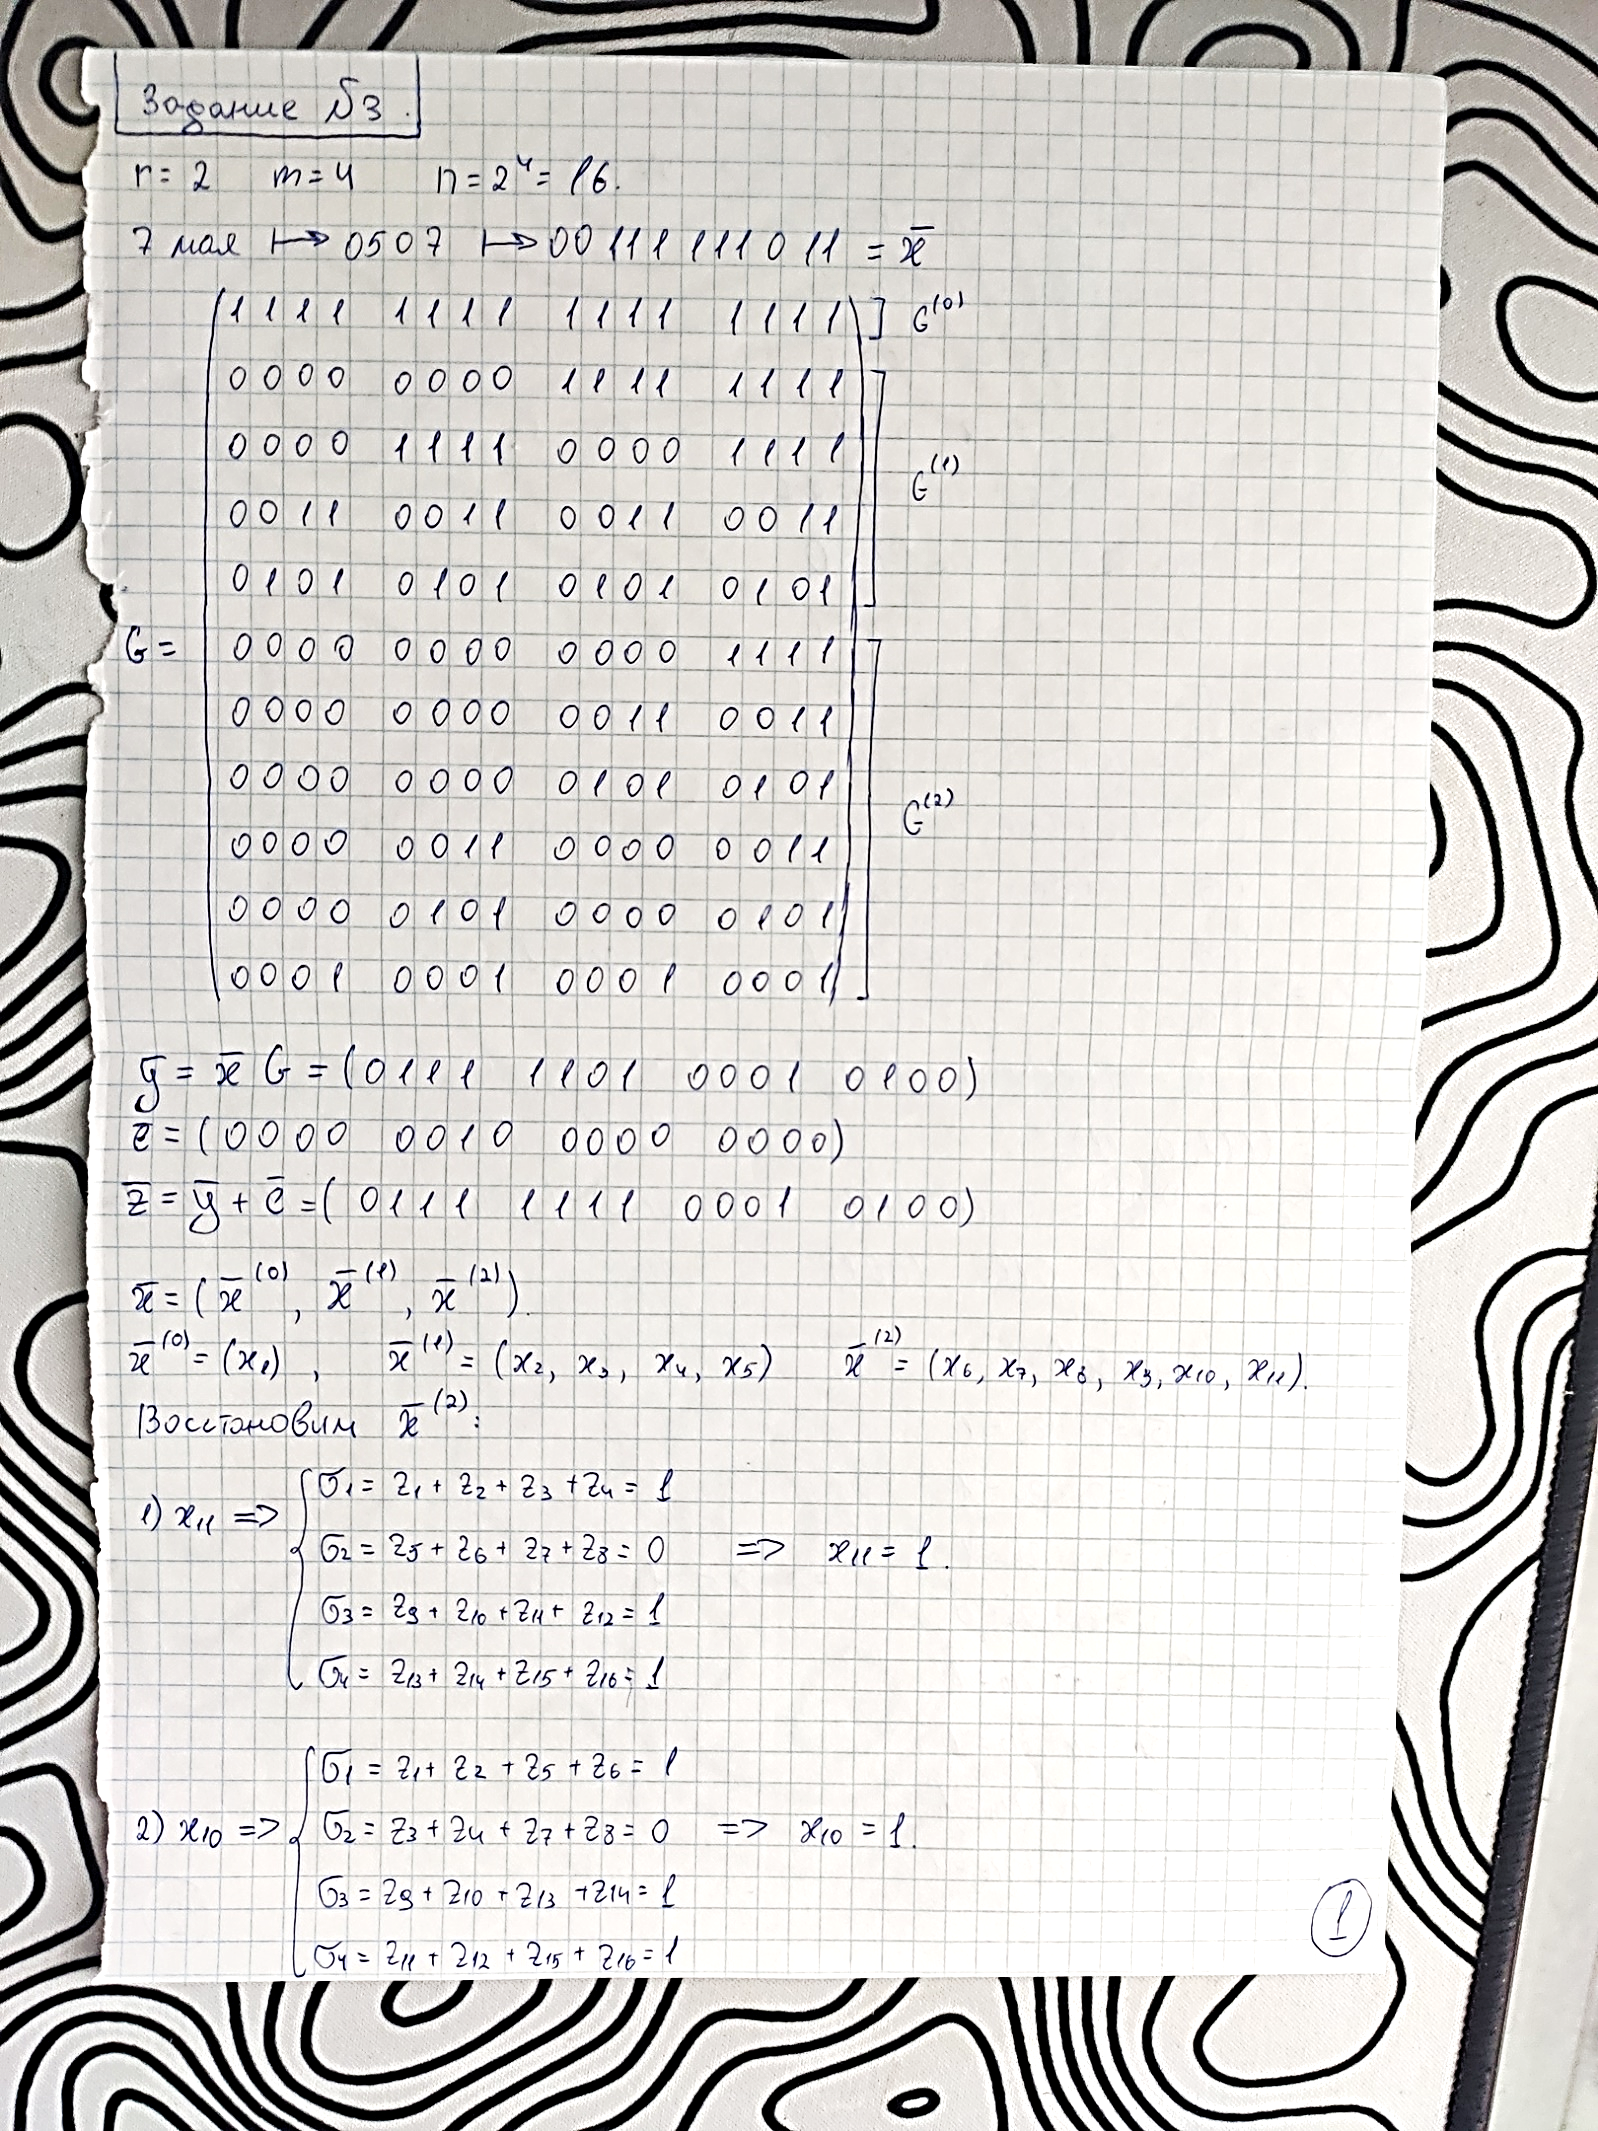 Задание №3.
r = 2 m = 4 n = 2⁴ = 16.
7 мая ↦ 0507 ↦ 00111111011 = x̄
1111 1111 1111 1111 ] G⁽⁰⁾
0000 0000 1111 1111
0000 1111 0000 1111
G⁽¹⁾
0011 0011 0011 0011
0101 0101 0101 0101
G = 0000 0000 0000 1111
0000 0000 0011 0011
0000 0000 0101 0101
G⁽²⁾
0000 0011 0000 0011
0000 0101 0000 0101
0001 0001 0001 0001
ȳ = x̄ G = (0111 1101 0001 0100)
ē = (0000 0010 0000 0000)
z̄ = ȳ + ē = (0111 1111 0001 0100)
x̄ = (x̄⁽⁰⁾, x̄⁽¹⁾, x̄⁽²⁾).
x̄⁽⁰⁾ = (x₁), x̄⁽¹⁾ = (x₂, x₃, x₄, x₅) x̄⁽²⁾ = (x₆, x₇, x₈, x₉, x₁₀, x₁₁).
Восстановим x̄⁽²⁾:
σ₁ = z₁ + z₂ + z₃ + z₄ = 1
1) x₁₁ => σ₂ = z₅ + z₆ + z₇ + z₈ = 0 => x₁₁ = 1.
σ₃ = z₉ + z₁₀ + z₁₁ + z₁₂ = 1
σ₄ = z₁₃ + z₁₄ + z₁₅ + z₁₆ = 1
σ₁ = z₁ + z₂ + z₅ + z₆ = 1
2) x₁₀ => σ₂ = z₃ + z₄ + z₇ + z₈ = 0 => x₁₀ = 1.
σ₃ = z₉ + z₁₀ + z₁₃ + z₁₄ = 1
σ₄ = z₁₁ + z₁₂ + z₁₅ + z₁₆ = 1
1